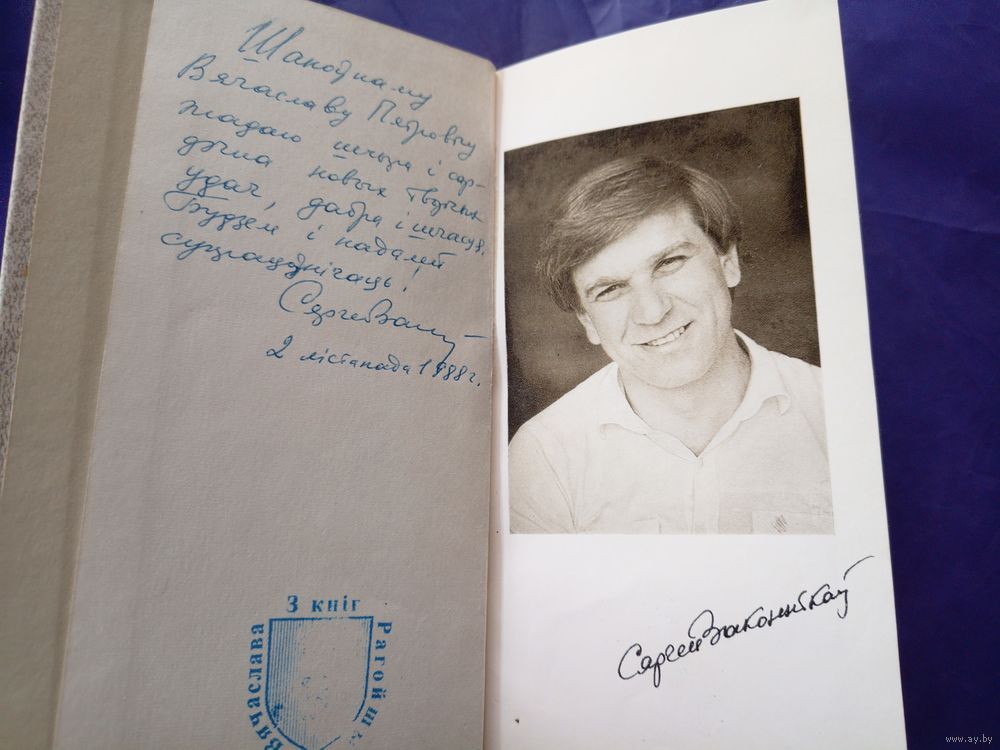 Шаноўнаму
Вячаславу Пятровічу
жадаю шчыра і сар-
дэчна новых творчых
удач, дабра і шчасця.
Будзем і надалей
супрацоўнічаць!
Сяргей
2 лістапада 1988 г.
З кніг
Вячаслава
Рагойш
Сяргей Законнікаў
www.ay.by